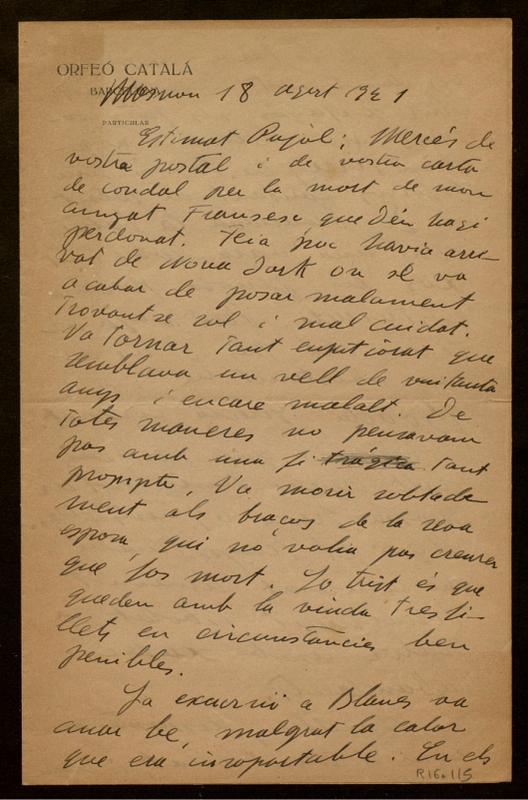 ORFEÓ CATALÁ
BARCELONA
Masnou 18 agost 1921
PARTICULAR
Estimat Pujol: Mercés de
vostra postal i de vostra carta
de condol per la mort de mon
Fransesc que Déu hagi
perdonat. Feia poc havia arri-
vat de Nova York on se va
acabar de posar malament
trovantse sol i mal cuidat.
Va tornar tant que
semblava un vell de vuitanta
anys i encare malalt. De
totes maneres no pensavam
pas amb una fi tràgica tant
prompte. Va morir sobtada-
ment als braços de la seva
esposa, qui no volia pas creurer
que fos mort. Lo trist és que
queden amb la viuda tres fi-
llets en circunstancies ben
penibles.
La excursió a Blanes va
anar be, malgrat la calor
que era insoportable. En els
R16.115